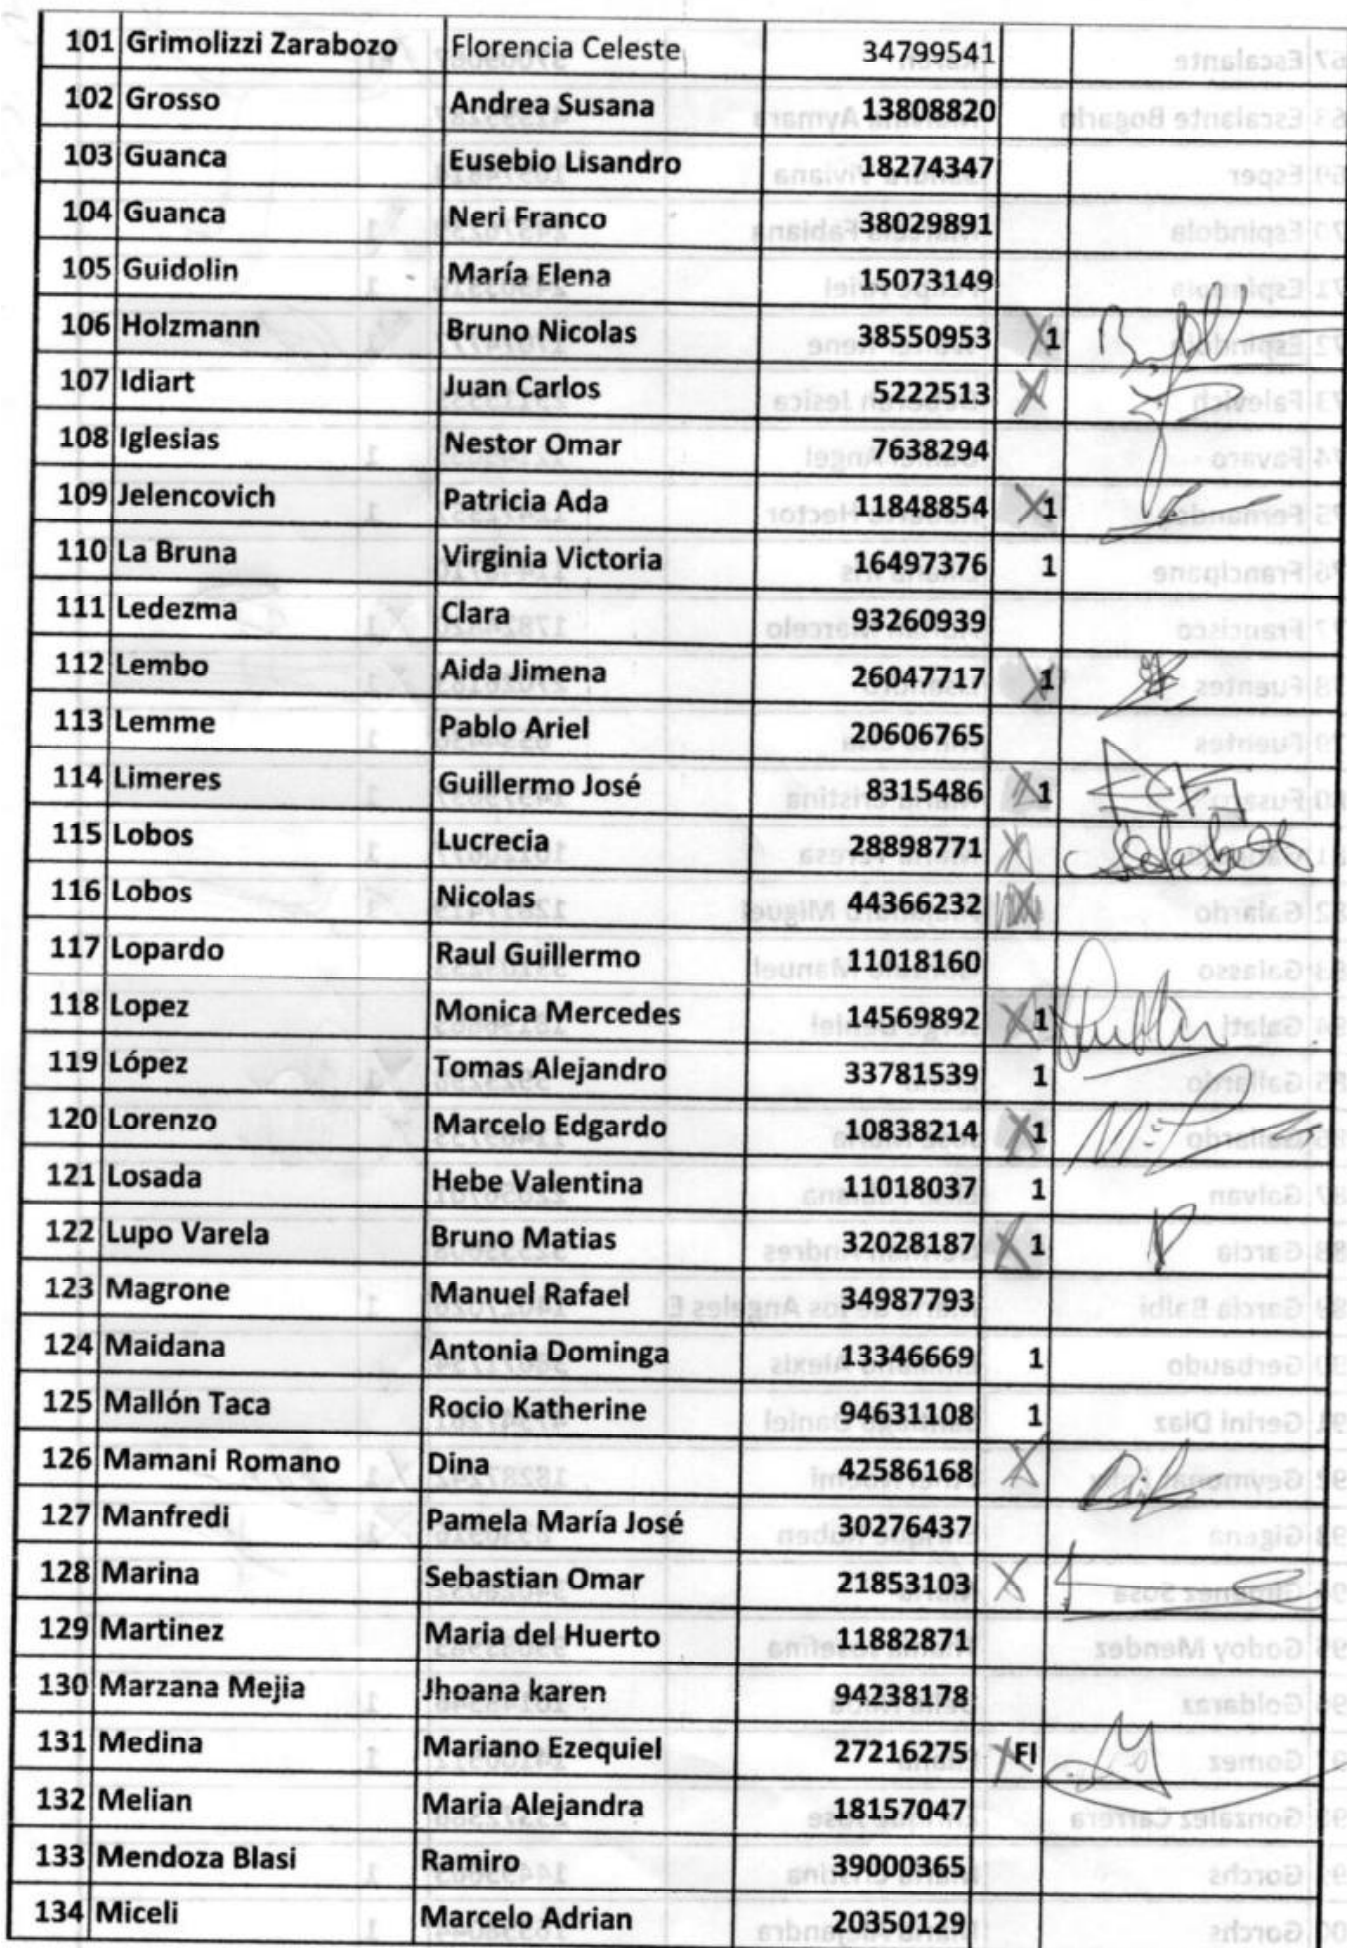 101 Grimolizzi Zarabozo Florencia Celeste 34799541
102 Grosso Andrea Susana 13808820
103 Guanca Eusebio Lisandro 18274347
104 Guanca Neri Franco 38029891
105 Guidolin María Elena 15073149
106 Holzmann Bruno Nicolas 38550953 X 1
107 Idiart Juan Carlos 5222513 X
108 Iglesias Nestor Omar 7638294
109 Jelencovich Patricia Ada 11848854 X 1
110 La Bruna Virginia Victoria 16497376 1
111 Ledezma Clara 93260939
112 Lembo Aida Jimena 26047717 X 1
113 Lemme Pablo Ariel 20606765
114 Limeres Guillermo José 8315486 X 1
115 Lobos Lucrecia 28898771 X
116 Lobos Nicolas 44366232
117 Lopardo Raul Guillermo 11018160
118 Lopez Monica Mercedes 14569892 X 1
119 López Tomas Alejandro 33781539 1
120 Lorenzo Marcelo Edgardo 10838214 X 1
121 Losada Hebe Valentina 11018037 1
122 Lupo Varela Bruno Matias 32028187 X 1
123 Magrone Manuel Rafael 34987793
124 Maidana Antonia Dominga 13346669 1
125 Mallón Taca Rocio Katherine 94631108 1
126 Mamani Romano Dina 42586168 X
127 Manfredi Pamela María José 30276437
128 Marina Sebastian Omar 21853103 X
129 Martinez Maria del Huerto 11882871
130 Marzana Mejia Jhoana karen 94238178
131 Medina Mariano Ezequiel 27216275 X FI
132 Melian Maria Alejandra 18157047
133 Mendoza Blasi Ramiro 39000365
134 Miceli Marcelo Adrian 20350129